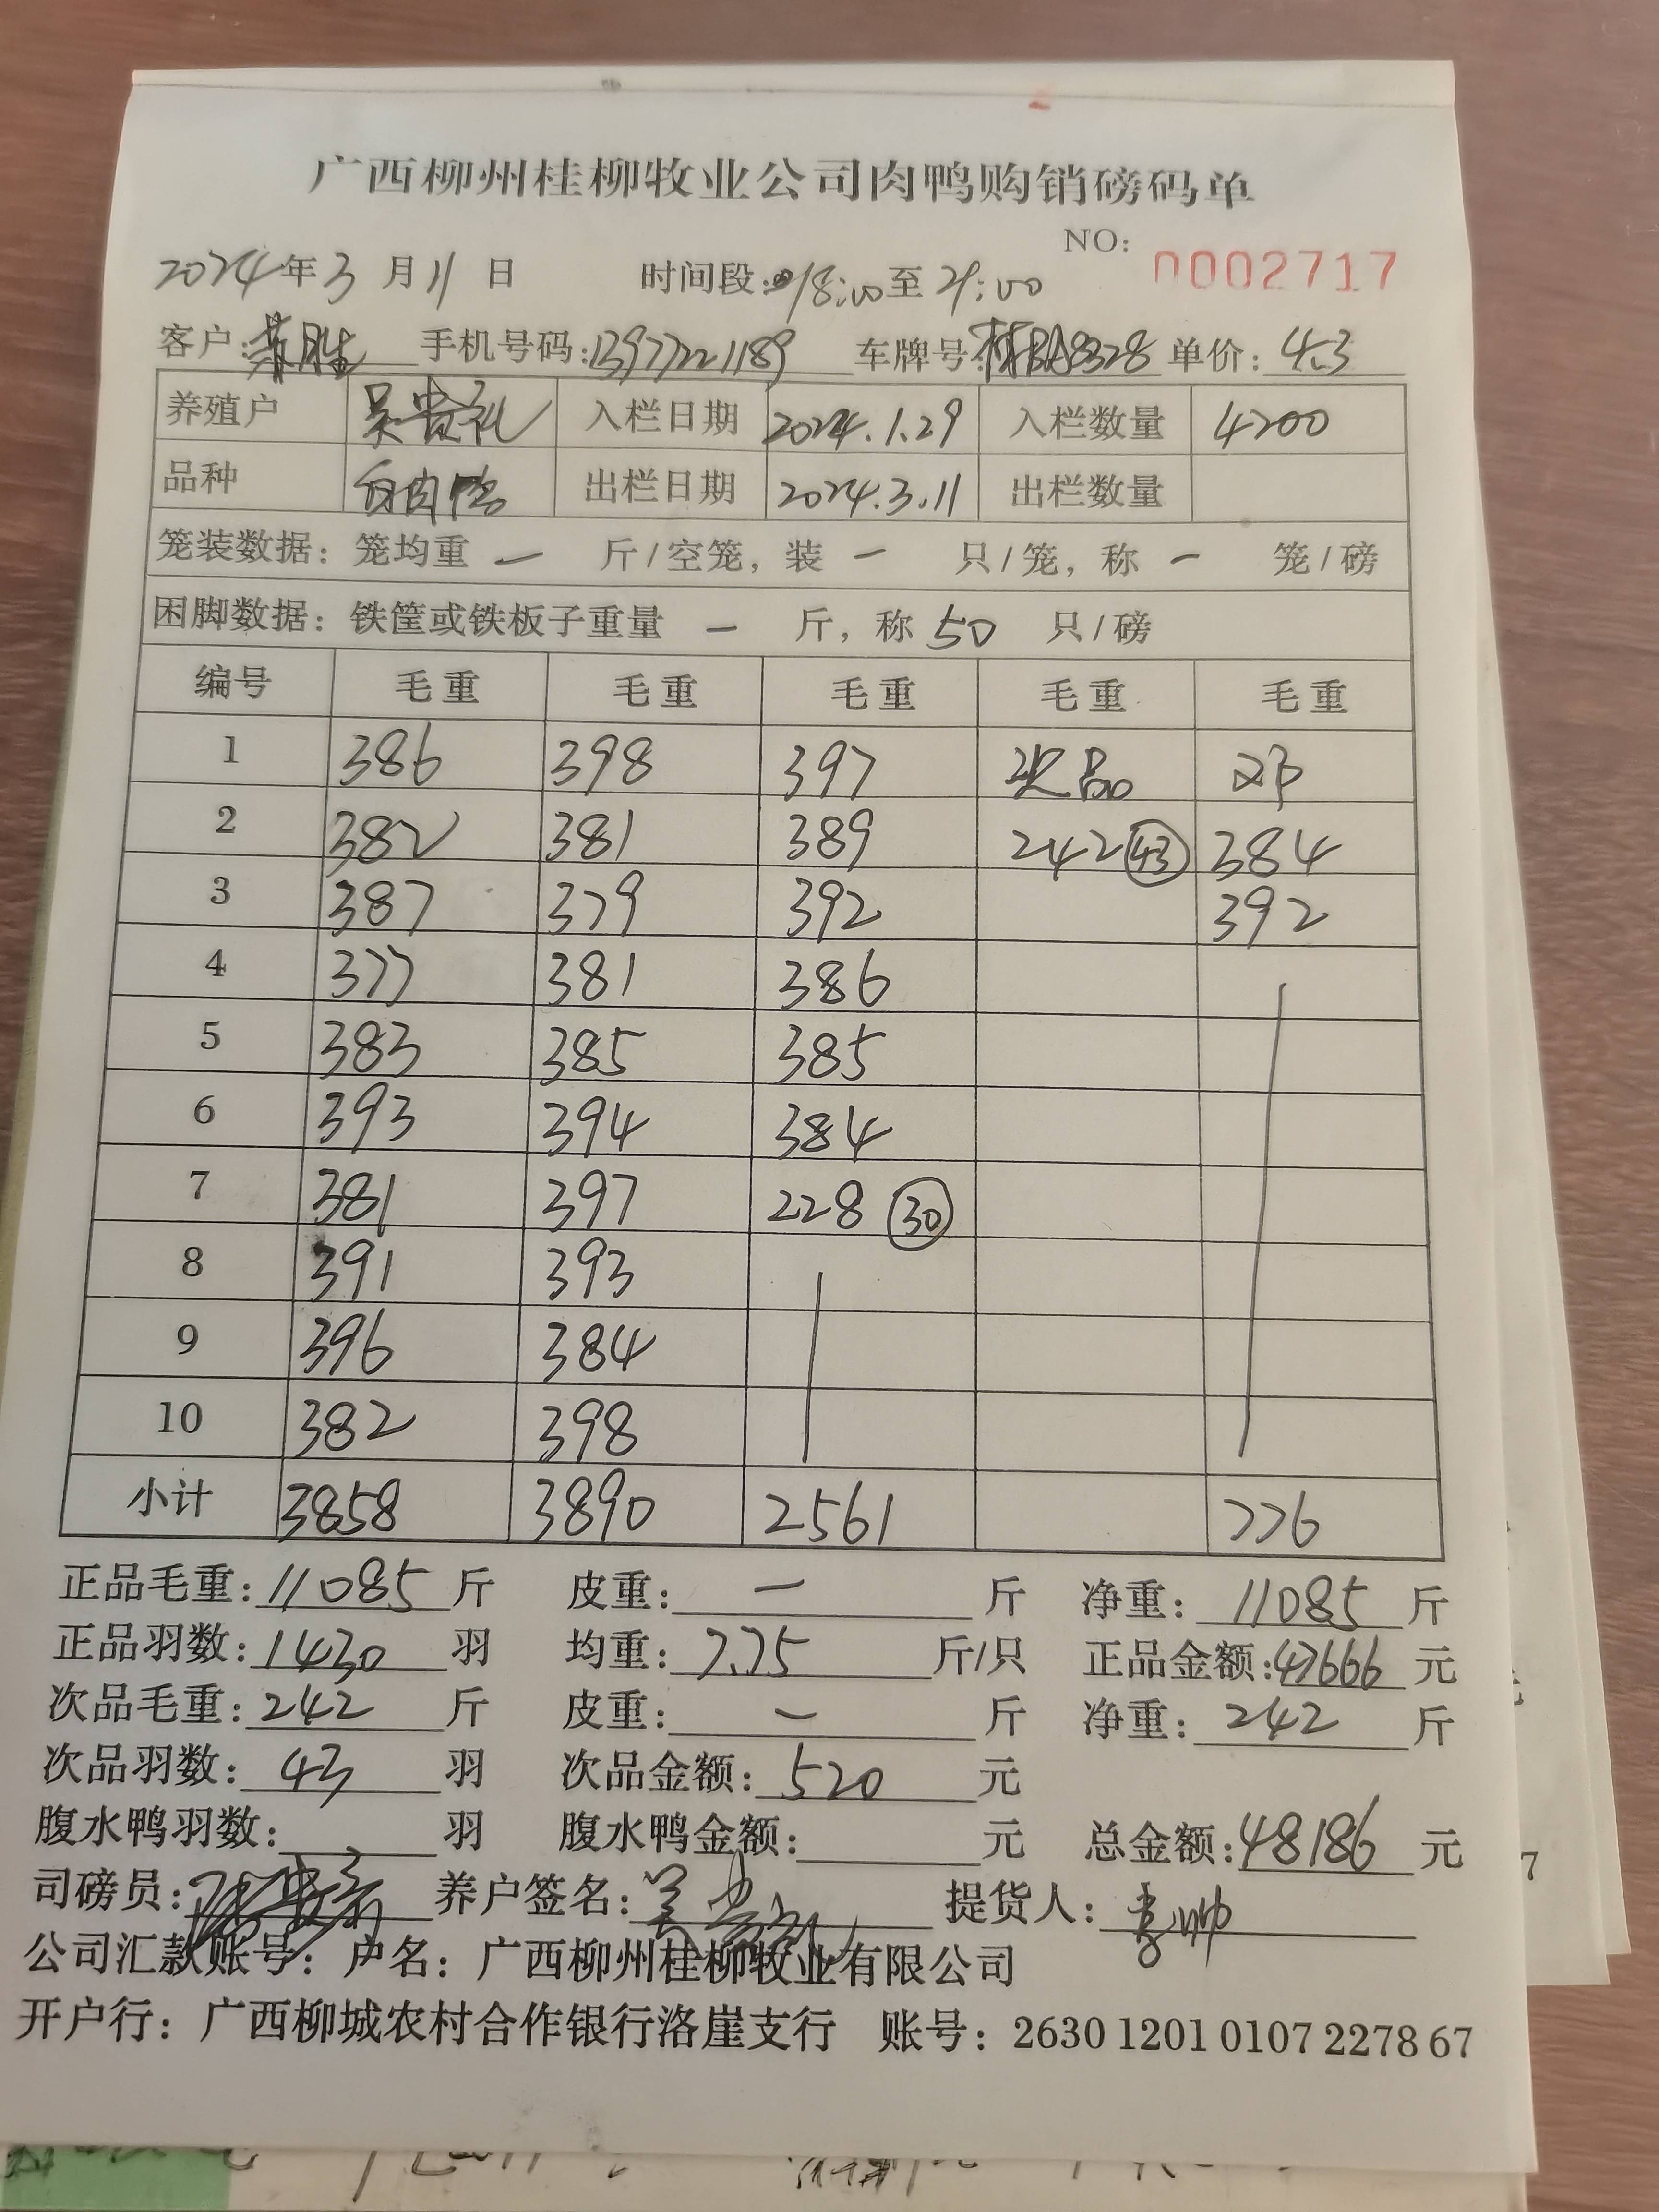 广西柳州桂柳牧业公司肉鸭购销磅码单
NO: 0002717
2024年3月11日 时间段:18:00至21:00
客户: 手机号码:13977221189 车牌号:桂BA8328 单价:4.3
养殖户 吴贵礼 入栏日期 2024.1.29 入栏数量 4200
品种 白肉鸭 出栏日期 2024.3.11 出栏数量
笼装数据：笼均重 — 斤/空笼，装 — 只/笼，称 — 笼/磅
困脚数据：铁筐或铁板子重量 — 斤，称 50 只/磅
编号 毛重 毛重 毛重 毛重 毛重
1 386 398 397 次品
2 382 381 389 242 43 384
3 387 379 392 392
4 377 381 386
5 383 385 385
6 393 394 384
7 381 397 228 30
8 391 393
9 396 384
10 382 398
小计 3858 3890 2561 776
正品毛重:11085斤 皮重:—斤 净重:11085斤
正品羽数:1430羽 均重:7.75斤/只 正品金额:47666元
次品毛重:242斤 皮重:—斤 净重:242斤
次品羽数:43羽 次品金额:520元
腹水鸭羽数:羽 腹水鸭金额:元 总金额:48186元
司磅员: 养户签名:吴贵礼 提货人:
公司汇款账号：户名：广西柳州桂柳牧业有限公司
开户行：广西柳城农村合作银行洛崖支行 账号：2630 1201 0107 2278 67